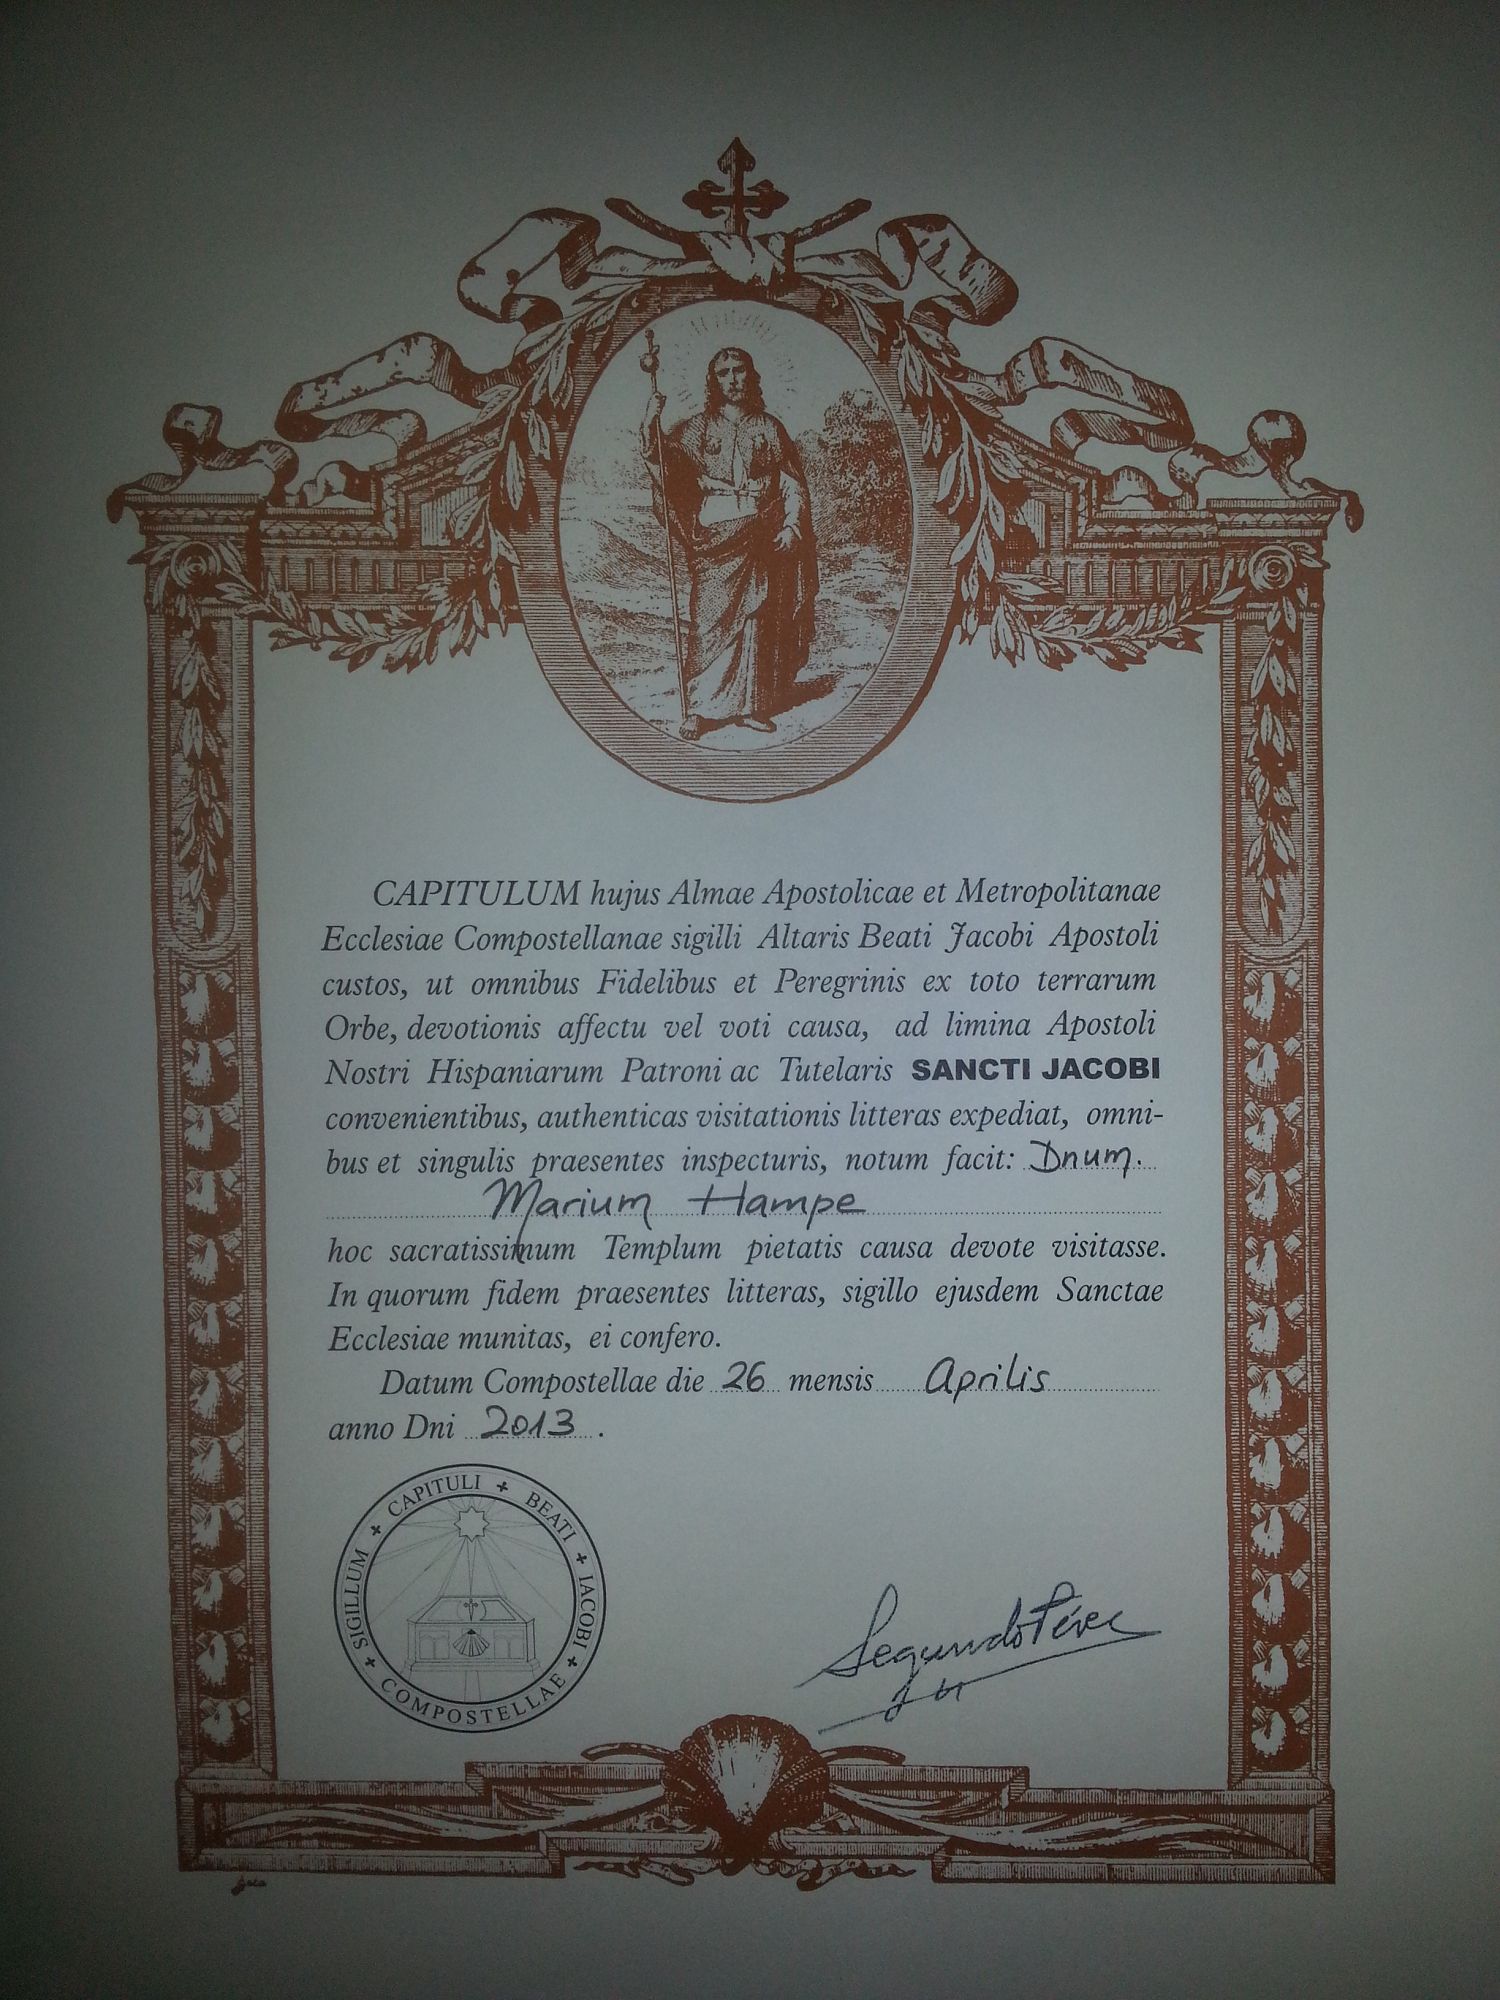 CAPITULUM hujus Almae Apostolicae et Metropolitanae
Ecclesiae Compostellanae sigilli Altaris Beati Jacobi Apostoli
custos, ut omnibus Fidelibus et Peregrinis ex toto terrarum
Orbe, devotionis affectu vel voti causa, ad limina Apostoli
Nostri Hispaniarum Patroni ac Tutelaris SANCTI JACOBI
convenientibus, authenticas visitationis litteras expediat, omni-
bus et singulis praesentes inspecturis, notum facit: Dnum.
Marium Hampe
hoc sacratissimum Templum pietatis causa devote visitasse.
In quorum fidem praesentes litteras, sigillo ejusdem Sanctae
Ecclesiae munitas, ei confero.
Datum Compostellae die 26 mensis Aprilis
anno Dni 2013.
SIGILLUM + CAPITULI + BEATI + IACOBI + COMPOSTELLAE +
Segundo Pérez